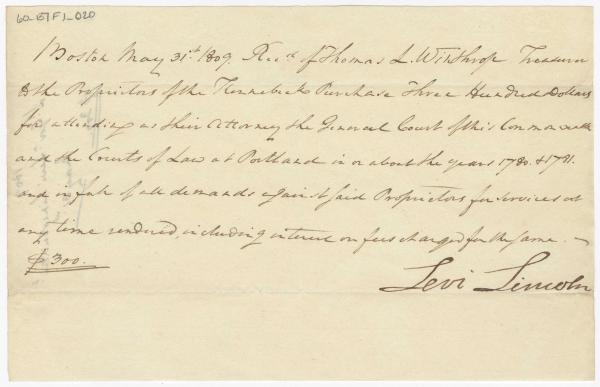 60_E7F1_020
Boston May 31st 1809. Recd. of Thomas L. Winthrop Treasurer
to the Proprietors of the Kennebeck Purchase Three Hundred Dollars
for attending as their Attorney the General Court of this Commonwealth
and the Courts of Law at Portland in or about the years 1780. & 1781.
and in full of all demands against said Proprietors for services at
any time rendered, including interest on fees charged for the same. —
$300.
Levi Lincoln